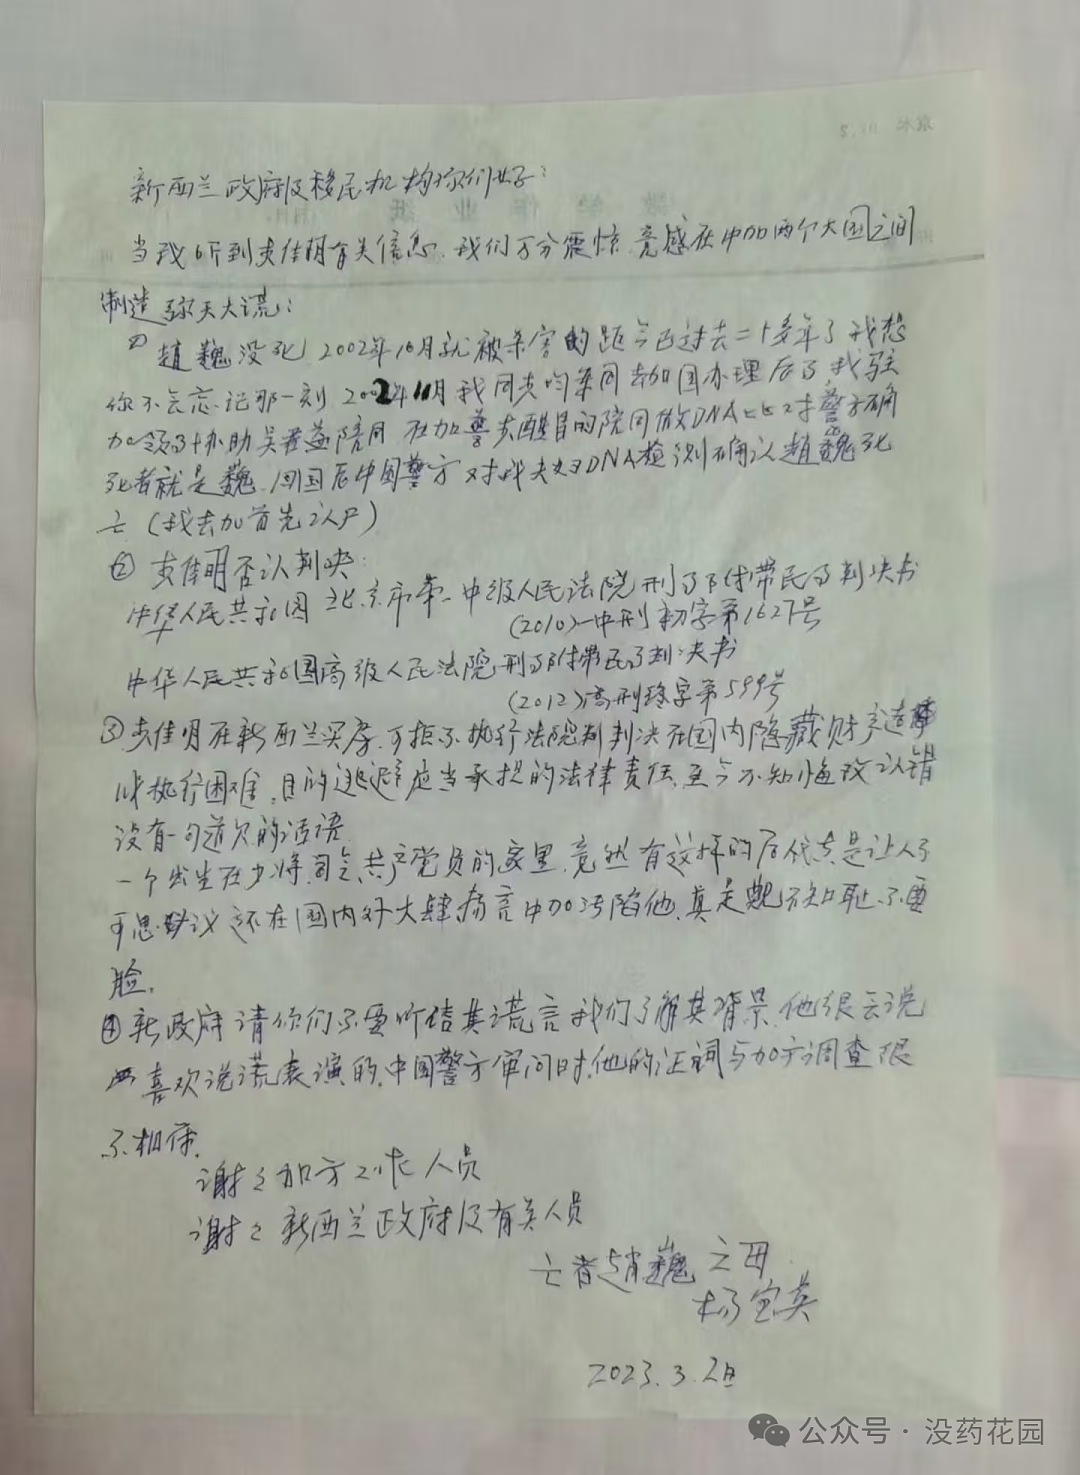 新西兰政府及移民机构你们好：
当我听到袁佳明有关信息，我们万分震惊，竟感在中加两个大国之间
制造弥天大谎：
① 趙巍没死，2002年10月就被杀害的距今已过去二十多年了我想
你不会忘记那一刻 2002年11月我同 去加国办理后事我驻
加领事协助吴 陪同 在加警 的陪同做DNA比对警方确
死者就是巍，回国后中国警方对我夫妇DNA检测确认趙巍死
亡（我去加首先认尸）
② 袁佳明否认判决：
中华人民共和国北京市第一中级人民法院刑事附带民事判决书
(2010)一中刑初字第1627号
中华人民共和国高级人民法院刑事附带民事判决书
(2012)高刑终字第599号
③ 袁佳明在新西兰买房，可拒不执行法院判判决在国内隐藏财产造
成执行困难，目的逃避应当承担的法律责任，至今不知悔改认错
没有一句道欠的话语
一个出生在少将，司令，共产党员的家里，竟然有这样的后代真是让人不
可思议还在国内外大肆扬言中加污陷他，真是 不知耻，不要
脸，
④ 新政府请你们不要听信其谎言我们了解其背景，他很会说
喜欢说谎表演的，中国警方审问时，他的证词与加方调查很
不相符，
谢之加方工作人员
谢之新西兰政府及有关人员
亡者趙巍 之母
杨宝英
2023.3.2日
公众号·没药花园